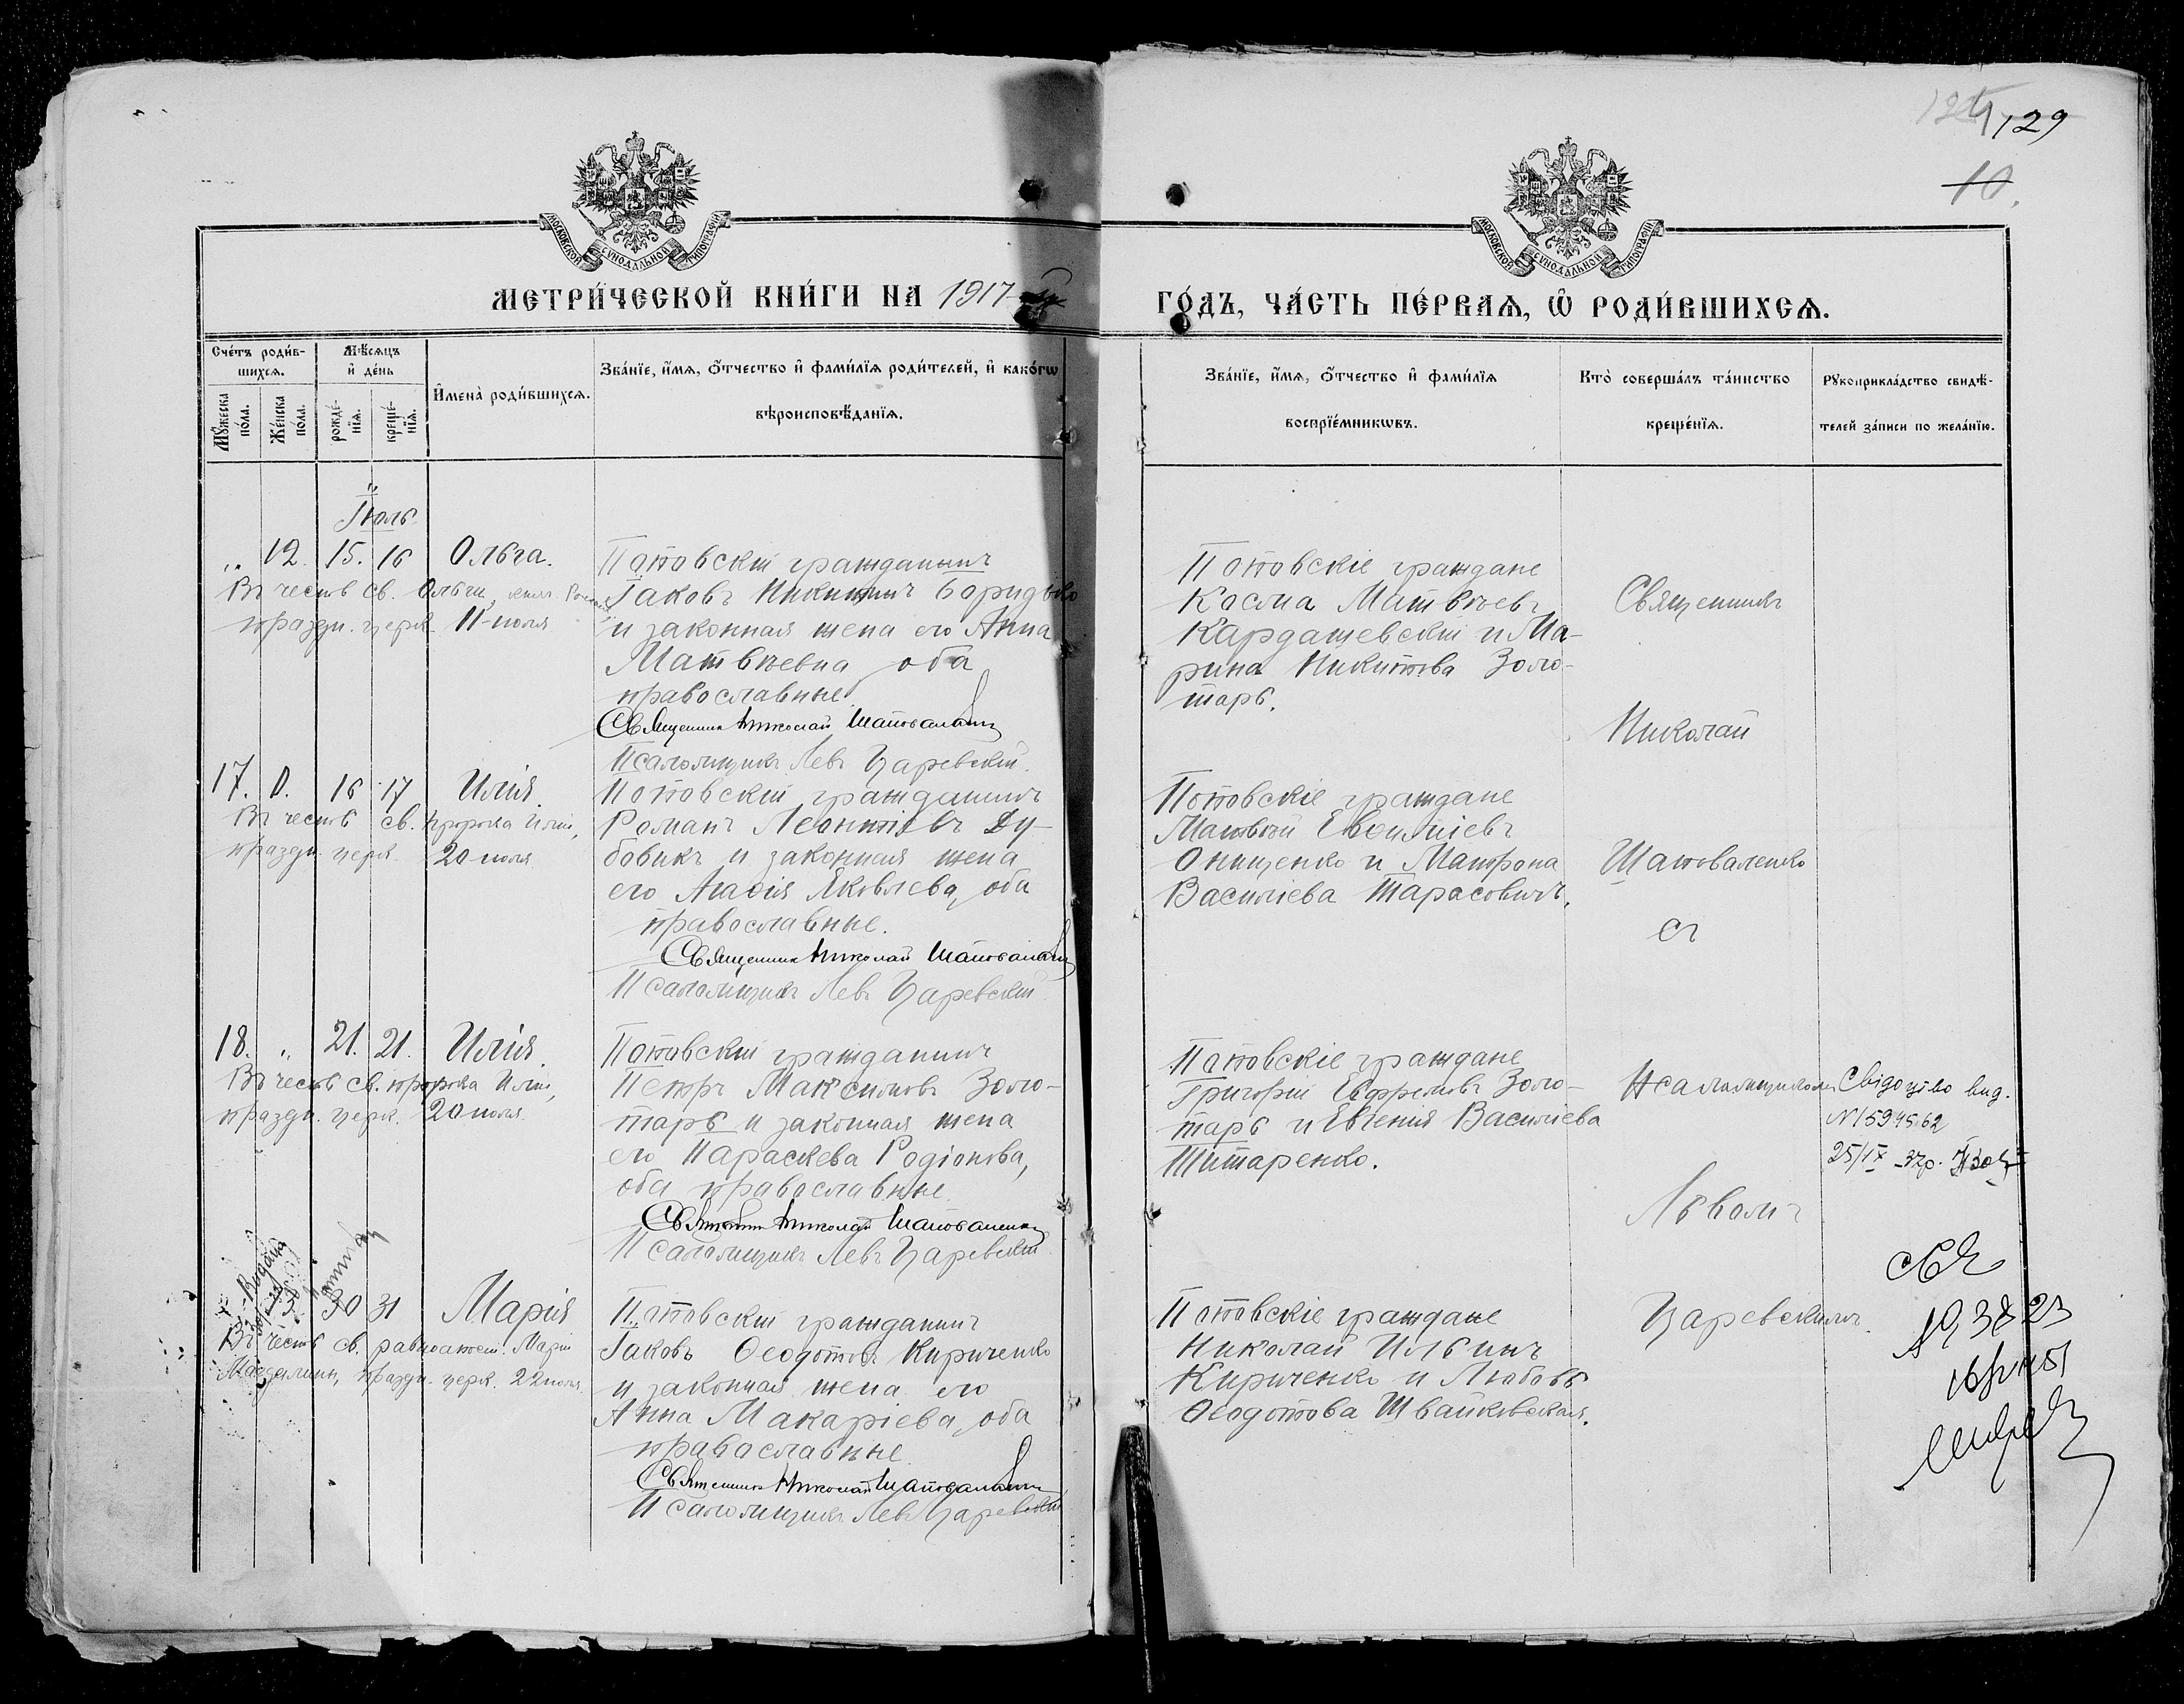 129
10.
МОСКОВСКОЙ СУНОДАЛЬНОЙ ТИПОГРАФІИ
МОСКОВСКОЙ СУНОДАЛЬНОЙ ТИПОГРАФІИ
МЕТРИ́ЧЕСКОЙ КНИ́ГИ НА 1917
ГО́ДЪ, ЧА́СТЬ ПЕ́РВАѦ, Ѽ РОДИ́ВШИХСѦ.
Сче́тъ роди́в-
шихсѧ.
Мѣ́сѧцъ
и҆ де́нь
И҆мена̀ роди́вшихсѧ.
Зва́нїе, и҆́мѧ, ѻ҆́тчество и҆ фами́лїѧ роди́телей, и҆ како́гѡ
вѣроисповѣ́данїѧ.
Мꙋ́жеска
по́ла.
Же́нска
по́ла.
рожде́-
нїѧ.
креще́-
нїѧ.
Зва́нїе, и҆́мѧ, ѻ҆́тчество и҆ фами́лїѧ
воспрїе́мникѡвъ.
Кто̀ соверша́лъ та́инство
креще́нїѧ.
Рꙋкоприкла́дство свидѣ́-
телей за́писи по жела́нїю.
Іюль
12. 15. 16 Ольга.
Въ честь св. Ольги,
праздн. церк. 11 іюля
Потовскій гражданинъ
Іаковъ Никитинъ
и законная жена его Анна
Матвѣевна оба
православные.
Священникъ Николай Шаповаленко
Псаломщикъ Левъ Царевскій.
Потовскіе граждане
Косма Матвѣевъ
Кардашевскій и Ма-
рина Никитова Золо-
тарь.
Священникъ
Николай
17. 0. 16 17 Илія.
Въ честь св. пророка Иліи,
праздн. церк. 20 іюля
Потовскій гражданинъ
Романъ Леонтіевъ Ду-
бовикъ и законная жена
его Агафія Яковлева, оба
православные.
Священникъ Николай Шаповаленко
Псаломщикъ Левъ Царевскій.
Потовскіе граждане
Матвѣй
Онищенко и Матрона
Василіева Тарасовичъ.
Шаповаленко
съ
18. „ 21. 21. Илія.
Въ честь св. пророка Иліи,
праздн. церк. 20 іюля.
Потовскій гражданинъ
Петръ Максимовъ Золо-
тарь и законная жена
его Параскева Родіонова,
оба православные.
Священникъ Николай Шаповаленко
Псаломщикъ Левъ Царевскій
Потовскіе граждане
Григорій Ефремовъ Золо-
тарь и Евгенія Василіева
Титаренко.
Псаломщикомъ
Львомъ
Свідоцтво вид.
25/IX 37р.
30 31 Марія
Въ честь св. равноапост. Маріи
Магдалины, праздн. церк. 22 іюля.
Потовскій гражданинъ
Іаковъ Ѳеодотовъ Кириченко
и законная жена его
Анна Макаріева, оба
православные.
Священникъ Николай Шаповаленко
Псаломщикъ Левъ Царевскій
Потовскіе граждане
Николай Ильинъ
Кириченко и Любовь
Ѳеодотова Швайковская.
Царевскимъ.